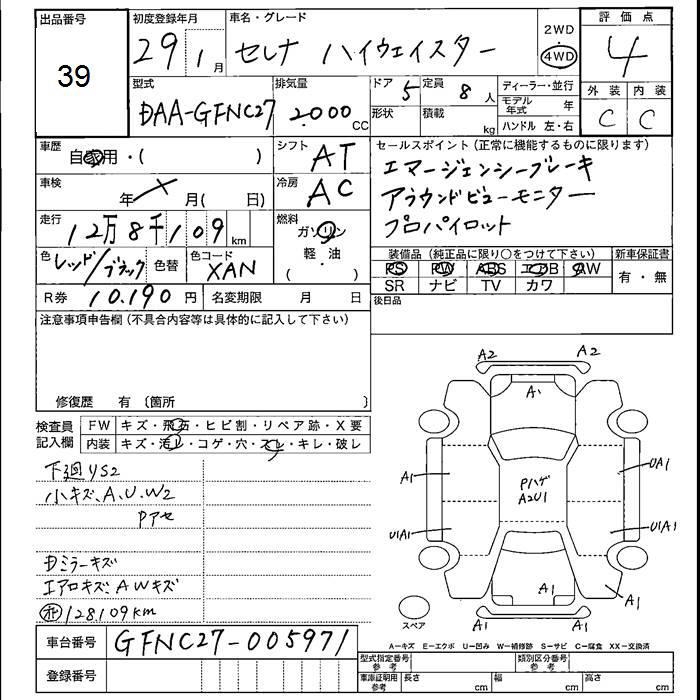 出品番号 39
初度登録年月 29 1月
車名・グレード セレナ ハイウェイスター
2WD 4WD
評価点 4
外装 C 内装 C
型式 DAA-GFNC27
排気量 2000 CC
ドア 5 定員 8 人
形状 積載 kg
ディーラー・並行
モデル年式 年
ハンドル 左・右
車歴 自家用・( )
シフト AT
車検 年 月( 日)
冷房 AC
走行 12万8千109 km
燃料 ガソリン 軽・油 ( )
色 レッド/ブラック 色替 色コード XAN
R券 10.190 円 名変期限 月 日
セールスポイント(正常に機能するものに限ります)
エマージェンシーブレーキ
アラウンドビューモニター
プロパイロット
装備品(純正品に限り○をつけて下さい) 新車保証書
PS PW ABS エアB AW 有・無
SR ナビ TV カワ
後日品
注意事項申告欄(不具合内容等は具体的に記入して下さい)
修復歴 有 〔箇所 〕
検査員記入欄
FW キズ・飛石・ヒビ割・リペア跡・X要
内装 キズ・汚レ・コゲ・穴・スレ・キレ・破レ
下廻りS2
小キズ、A、U、W2
Pアセ
Dミラーキズ
エアロキズ、AWキズ
128.109km
車台番号 GFNC27-005971
登録番号
A2 A2
A1
A1 UA1
Pハゲ
A2U1
U1A1 U1A1
A1 A1
スペア A1 A1
A-キズ E-エクボ U-凹み W-補修跡 S-サビ C-腐食 XX-交換済
型式指定番号 参考 類別区分番号 参考
車庫証明用 参考 長さ cm 幅 cm 高さ cm